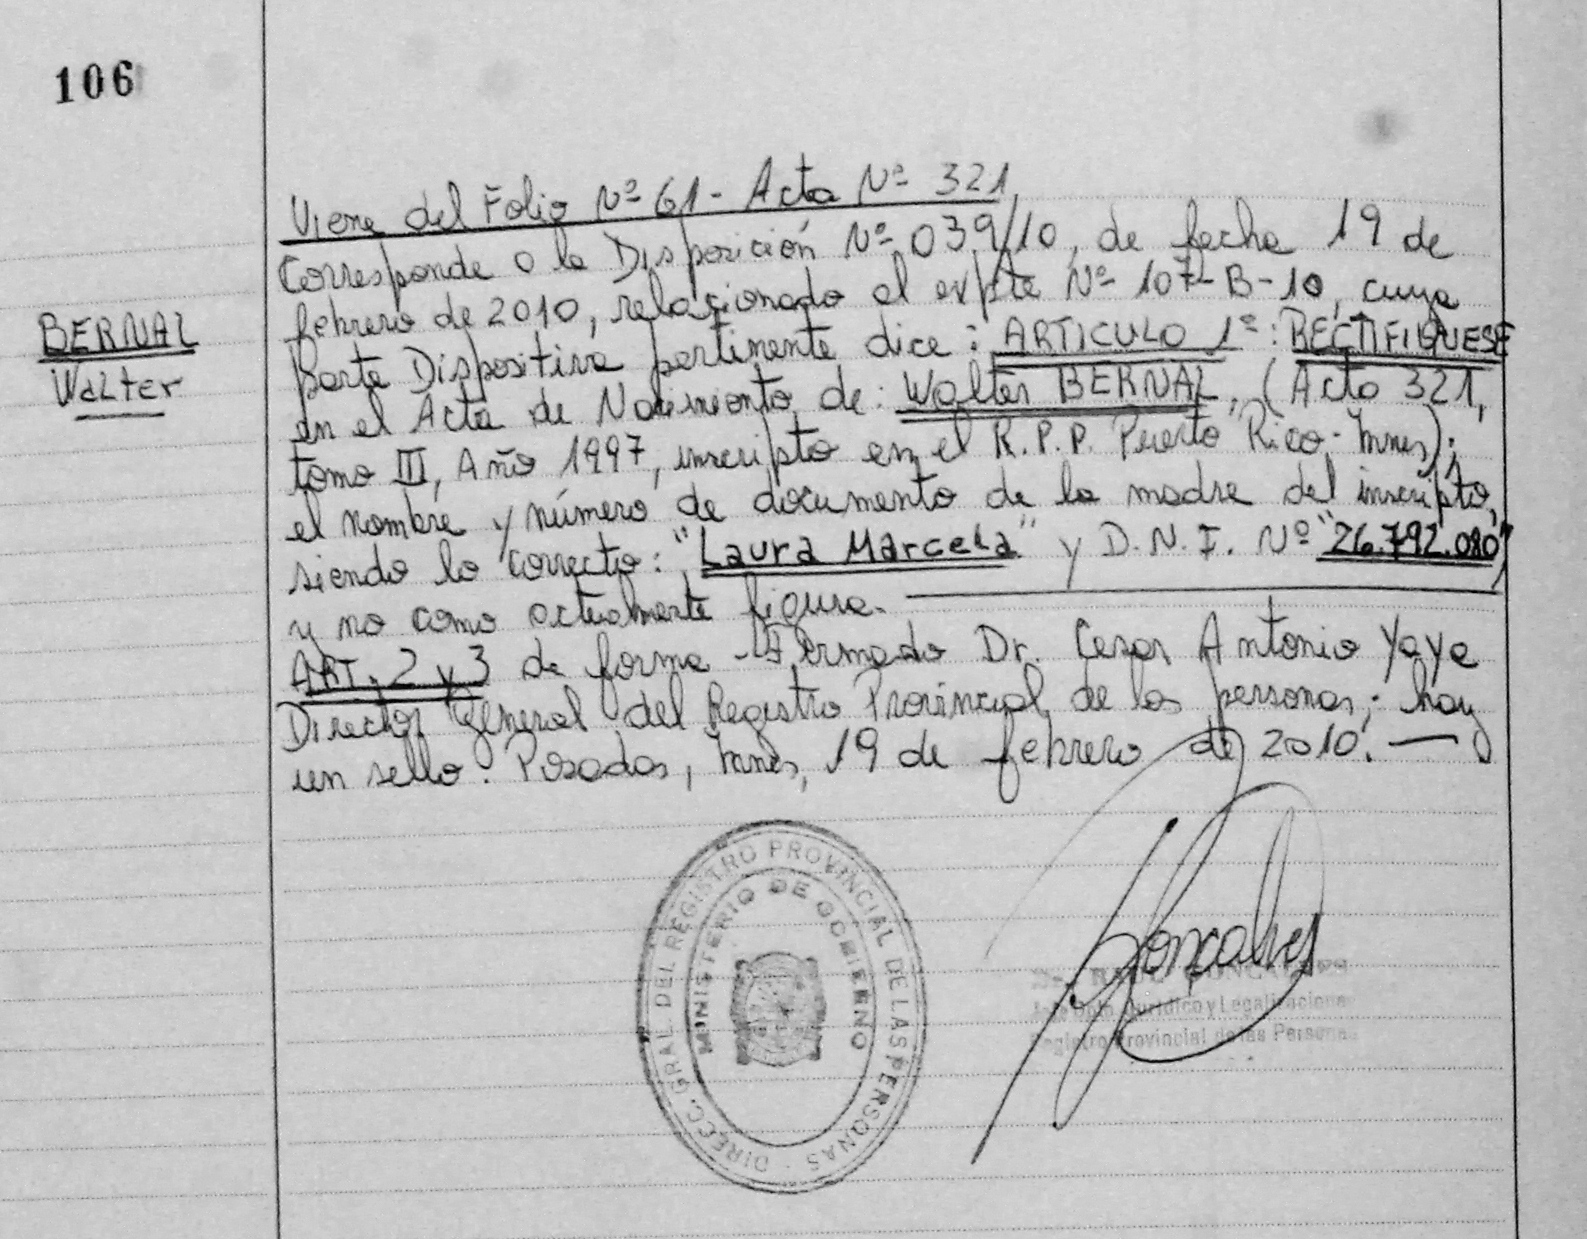 106
BERNAL
Walter
Viene del Folio Nº 61 - Acta Nº 321
Corresponde a la Disposición Nº 039/10, de fecha 19 de
febrero de 2010, relacionado al expte Nº 107-B-10, cuya
parte Dispositiva pertinente dice: ARTICULO 1º: RECTIFIQUESE
en el Acta de Nacimiento de: Walter BERNAL, (Acta 321,
tomo III, Año 1997, inscripto en el R.P.P. Puerto Rico - Mnes);
el nombre y número de documento de la madre del inscripto,
siendo lo correcto: "Laura Marcela" y D.N.I. Nº "26.792.080"
y no como actualmente figura.
ART. 2 y 3 de forma - Firmado Dr. Cesar Antonio Yaya
Director General del Registro Provincial de las personas; hay
un sello. Posadas, Mnes, 19 de febrero de 2010.
DIRECC. GRAL. DEL REGISTRO PROVINCIAL DE LAS PERSONAS
MINISTERIO DE GOBIERNO
Jurídico y Legalizaciones
Registro Provincial de las Personas